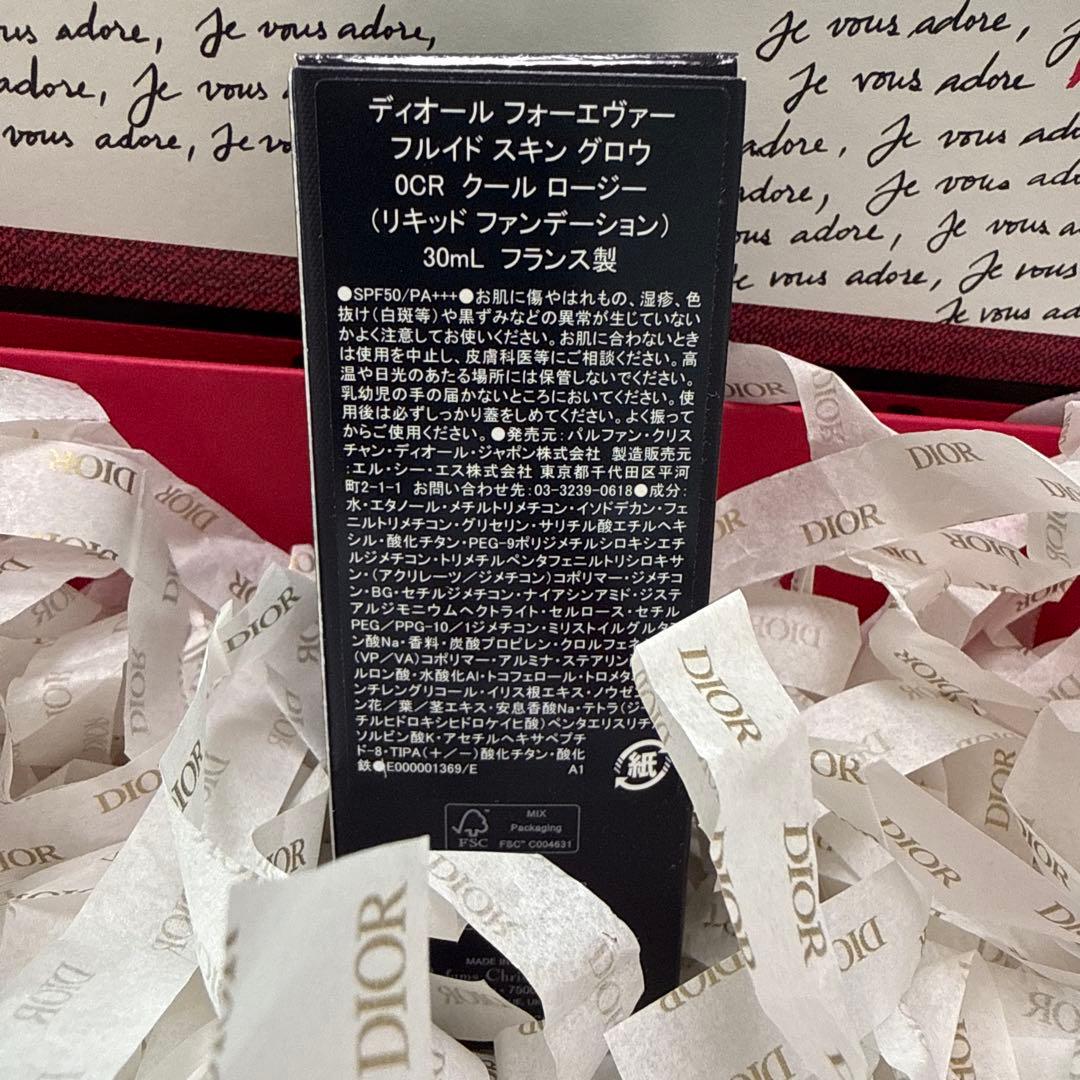 us adore, Je vous adore,
adore, Je vous
vous adore, Je vo
Je vous adore,
Je vous adore
adore, Je vous ado
adore, Je vous ado
ous adore, Je vous a
e vous adore, Je vous
Je vous ad
ディオール フォーエヴァー
フルイド スキン グロウ
0CR クール ロージー
（リキッド ファンデーション）
30mL フランス製
●SPF50/PA+++●お肌に傷やはれもの、湿疹、色
抜け(白斑等)や黒ずみなどの異常が生じていない
かよく注意してお使いください。お肌に合わないとき
は使用を中止し、皮膚科医等にご相談ください。高
温や日光のあたる場所には保管しないでください。
乳幼児の手の届かないところにおいてください。使
用後は必ずしっかり蓋をしめてください。よく振って
からご使用ください。●発売元:パルファン・クリス
チャン・ディオール・ジャポン株式会社 製造販売元
:エル・シー・エス株式会社 東京都千代田区平河
町2-1-1 お問い合わせ先:03-3239-0618●成分:
水・エタノール・メチルトリメチコン・イソドデカン・フェ
ニルトリメチコン・グリセリン・サリチル酸エチルヘキ
シル・酸化チタン・PEG-9ポリジメチルシロキシエチ
ルジメチコン・トリメチルペンタフェニルトリシロキサ
ン・(アクリレーツ/ジメチコン)コポリマー・ジメチコ
ン・BG・セチルジメチコン・ナイアシンアミド・ジステ
アルジモニウムヘクトライト・セルロース・セチル
PEG/PPG-10/1ジメチコン・ミリストイルグルタ
ン酸Na・香料・炭酸プロピレン・クロルフェネ
(VP/VA)コポリマー・アルミナ・ステアリン
ルロン酸・水酸化Al・トコフェロール・トロメタ
ンチレングリコール・イリス根エキス・ノウゼ
ン花/葉/茎エキス・安息香酸Na・テトラ(ジ
チルヒドロキシヒドロケイヒ酸)ペンタエリスリチ
ソルビン酸K・アセチルヘキサペプチ
ド-8・TIPA(+/−)酸化チタン・酸化
鉄●E000001369/E A1
紙
FSC
MIX
Packaging
FSC™ C004631
MADE IN
fums Chri
DIOR
DIOR
DIOR
DIOR
DIOR
DIOR
DIOR
DIOR
DIOR
DIOR
DIOR
DIOR